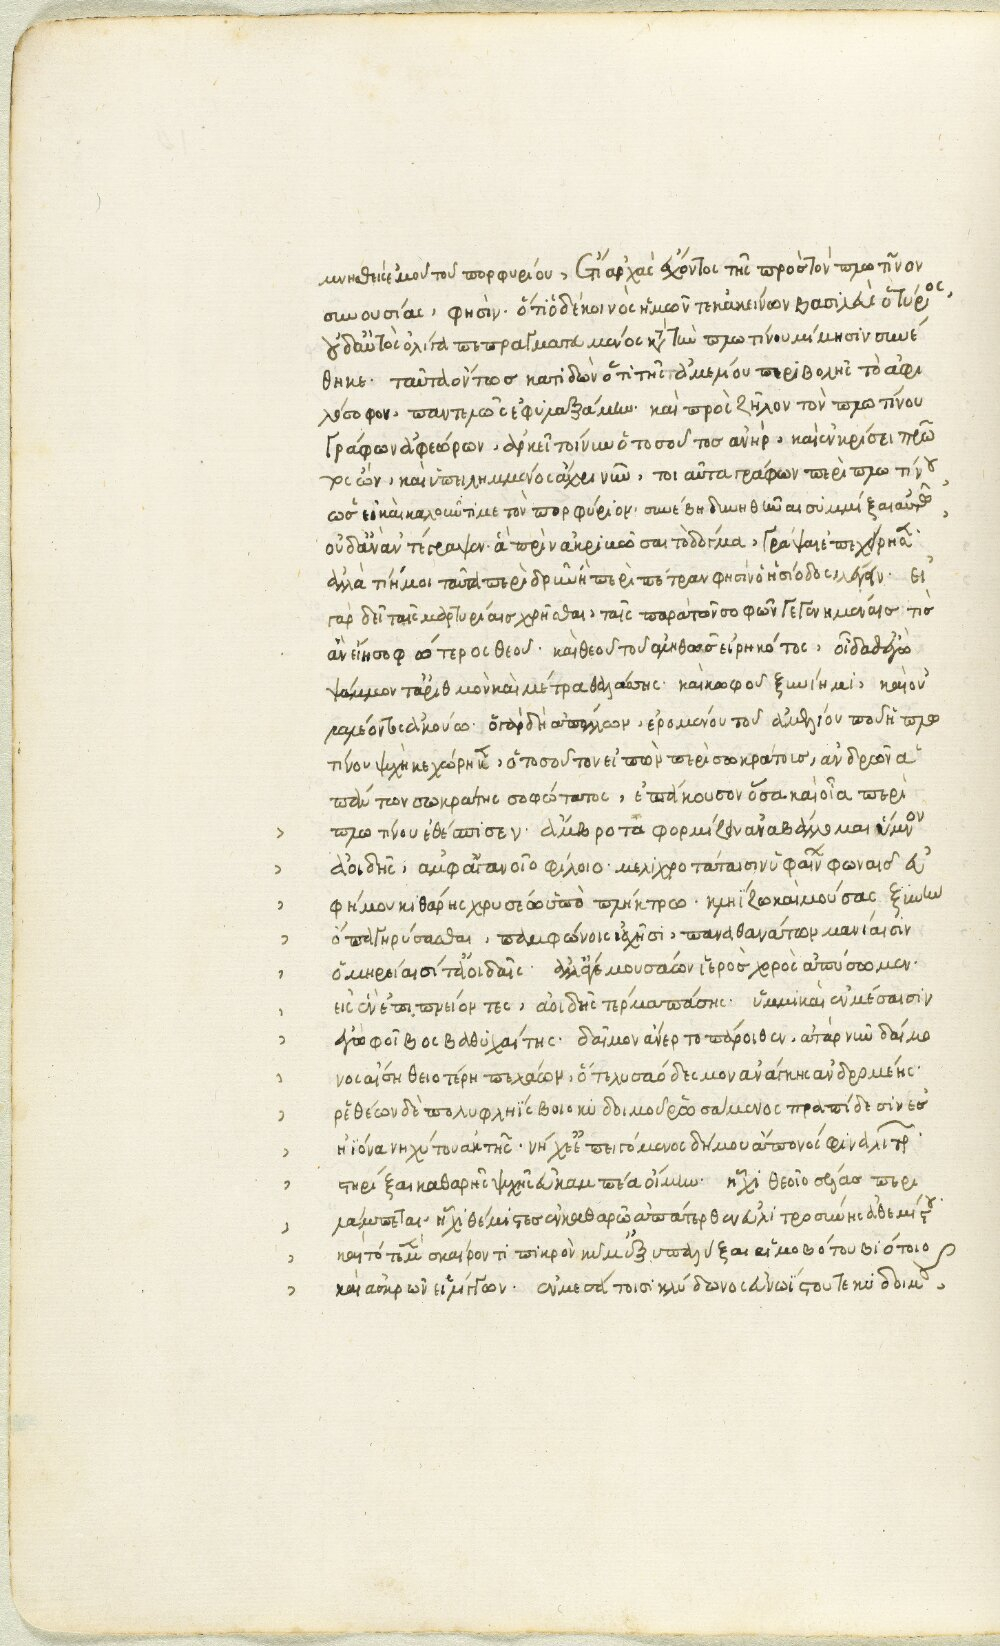 μνησθεὶς ἐμοῦ τοῦ πορφυρίου, ἔτι ἀρχὰς ἔχοντος τῆς πρὸς τὸν πλωτῖνον
συνουσίας, φησίν· ὅτι ὁ δὲ κοινὸς ἡμῶν τε κἀκείνων βασιλεὺς ὁ τύριος,
οὐδ' αὐτὸς ὀλίγα πεπραγματευμένος κατὰ τὴν πλωτίνου μίμησιν συνέ
θηκε· ταῦτα οὕτως κατιδὼν ὅτι τῆς ἀμελίου περιβολῆς τὸ ἀφι
λόσοφον, παντελῶς ἐφυλαξάμην· καὶ πρὸς ζῆλον τὸν πλωτίνου
γράφων ἀφεώρων, ἀρκεῖ τοίνυν ὁ τοσοῦτος ἀνὴρ, καὶ ἐν κρίσει πρῶ
τος ὢν, καὶ ὑπειλημμένος ἄχρι νῦν, τοιαῦτα γράφων περὶ πλωτίνου,
ὡς εἰ καὶ καλοῦντί με τὸν πορφύριον· συνέβη δυνηθῆναι συμμίξαι αὐτῷ,
οὐδ' ἂν ἀντέγραψεν· ἃ πρὶν ἀκριβῶσαι τὸ δόγμα, γράψαι ἐπεχείρησεν·
ἀλλὰ τίη μοι ταῦτα περὶ δρῦν ἢ περὶ πέτραν φησὶν ὁ ἡσίοδος λέγειν· εἰ
γὰρ δεῖ ταῖς μαρτυρίαις χρῆσθαι, ταῖς παρὰ τῶν σοφῶν γεγενημέναις τίς
ἂν εἴη σοφώτερος θεοῦ· καὶ θεοῦ τοῦ ἀληθῶς εἰρηκότος, οἶδα δ' ἐγὼ
ψάμμου τ' ἀριθμὸν καὶ μέτρα θαλάσσης· καὶ κωφοῦ ξυνίημι, καὶ οὐ
λαλέοντος ἀκούω· ὁ γὰρ δὴ ἀπόλλων, ἐρομένου τοῦ ἀμελίου ποῦ ἡ πλω
τίνου ψυχὴ κεχώρηκεν, ὁ τοσοῦτον εἰπὼν περὶ σωκράτους, ἀνδρῶν ἁ
πάντων σωκράτης σοφώτατος, ἐπάκουσον ὅσα καὶ οἷα περὶ
πλωτίνου ἐθέσπισεν· ἄμβροτα φορμίζειν ἀναβάλλομαι ὕμνον
ἀοιδῆς, ἀμφ' ἀγανοῖο φίλοιο· μελιχροτάταισιν ὑφαίνων φωναῖς εὐ
φήμου κιθάρης χρυσέῳ ὑπὸ πλήκτρῳ· κλῄζω καὶ μούσας ξυνὴν
ὄπα γηρύσασθαι, παμφώνοις ἰαχῇσι, παναθανάτων μανίαισιν
ὁμηρείαισί τ' ἀοιδαῖς· ἀλλ' ἄγε μουσάων ἱερὸς χορὸς ἀπύσωμεν·
εἰς ἓν ἐπιπνείοντες, ἀοιδῆς τέρματα πάσης· ὕμμι καὶ ἐν μέσαισιν
ἐγὼ φοῖβος βαθυχαίτης· δαῖμον ἄνερ τὸ πάροιθεν, ἀτὰρ νῦν δαίμο
νος αἴσῃ θειοτέρῃ πελάων, ὅτ' ἐλύσαο δεσμὸν ἀνάγκης ἀνδρομέης·
ῥεθέων δὲ πολυφλοίσβοιο κυδοιμοῦ ῥωσάμενος πραπίδεσσιν ἐς
ἠϊόνα νηχύτου ἀκτῆς· νήχε' ἐπειγόμενος δήμου ἄπο νόσφιν ἀλιτρῶν·
στηρίξαι καθαρῆς ψυχῆς εὐκαμπέα οἴμην· ἧχι θεοῖο σέλας περι
λάμπεται· ἧχι θέμιστες ἐν καθαρῷ ἀπάτερθεν ἀλιτροσύνης ἀθεμίστου·
καὶ τότε μὲν σκαίροντι πικρὸν κῦμ' ἐξυπαλύξαι αἱμοβότου βιότοιο
καὶ ἀσηρῶν εἰλίγγων· ἐν μεσάτοισι κλύδωνος ἀνωΐστου τε κυδοιμοῦ,